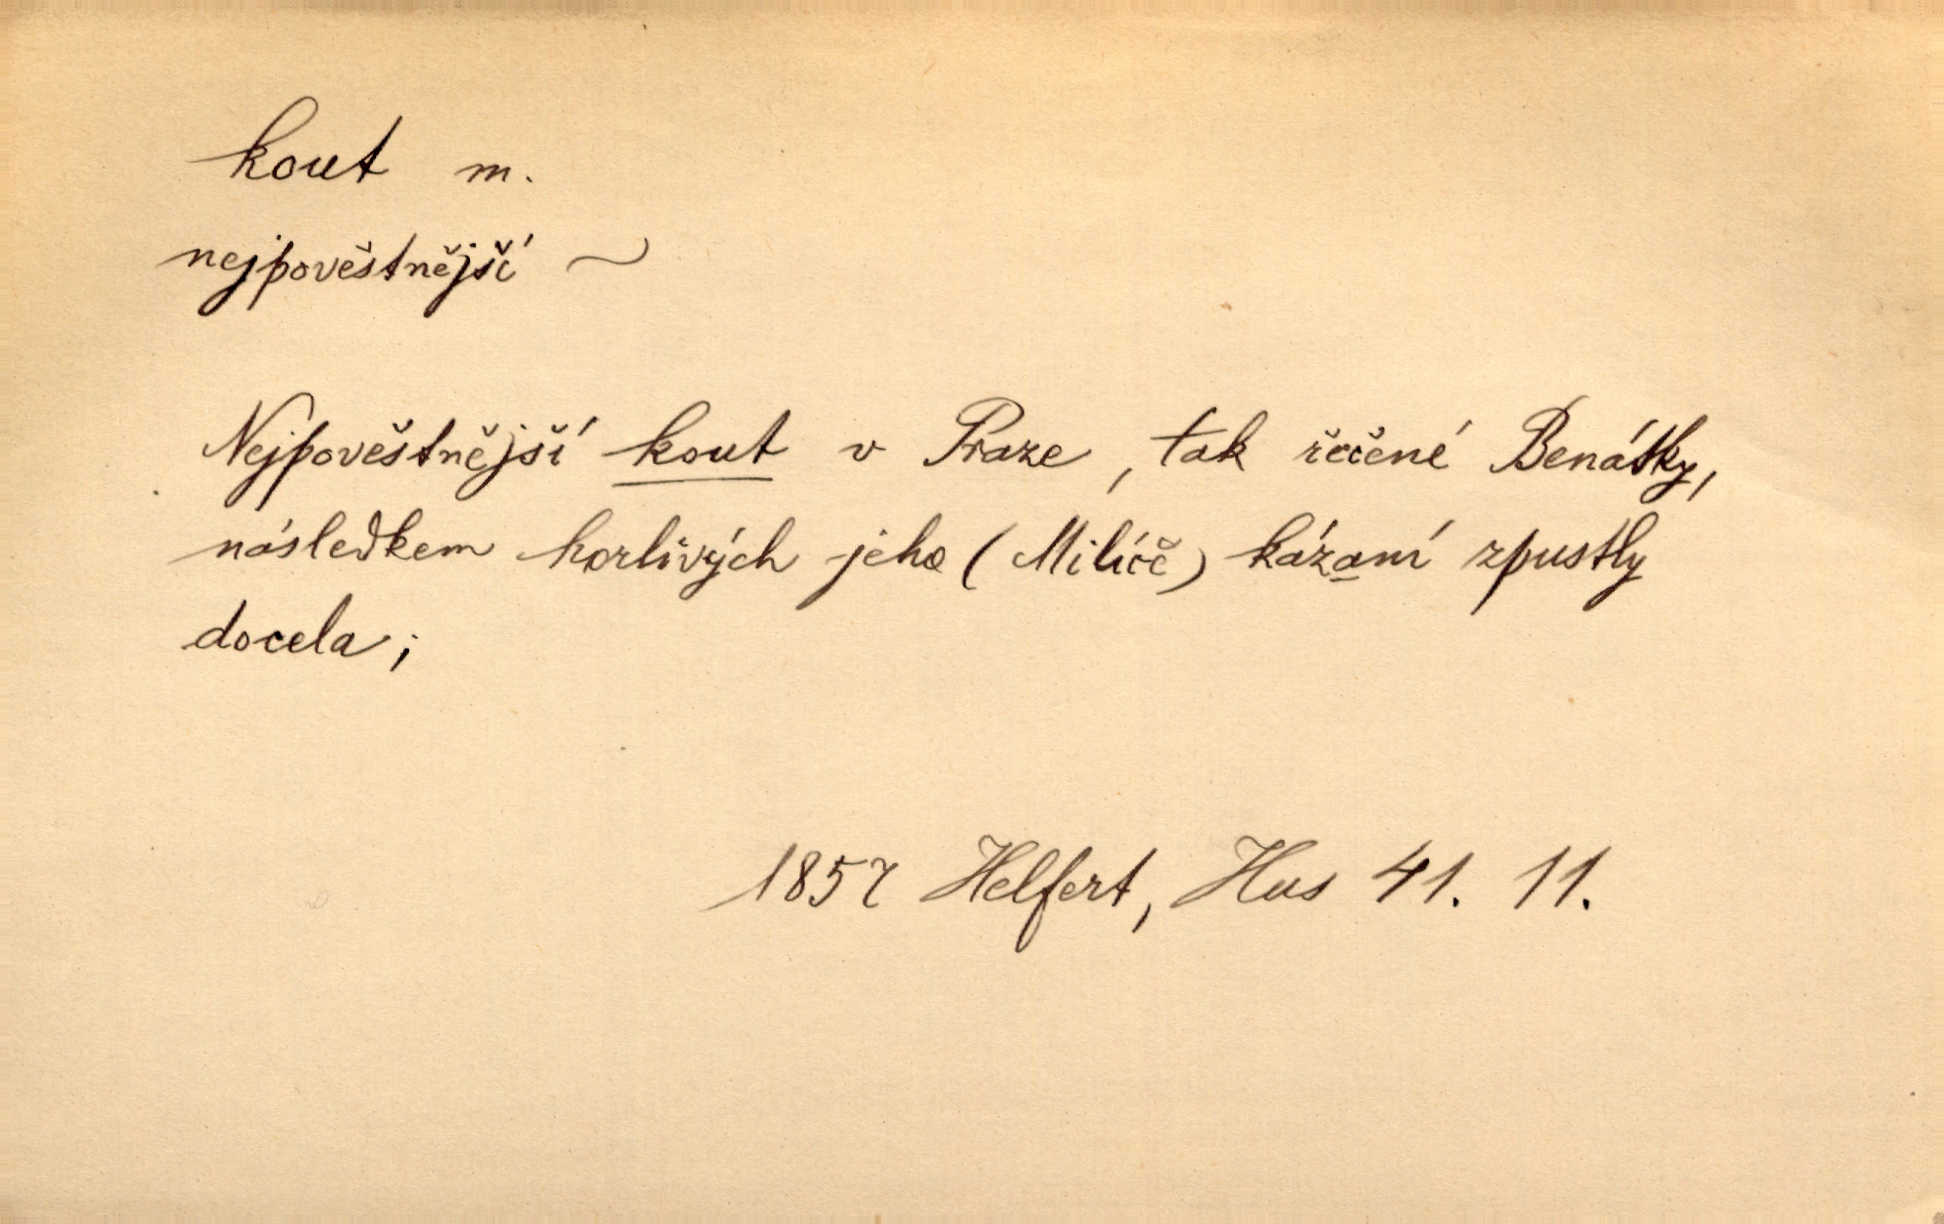 kout m.
nejpověstnější ~
Nejpověstnější kout v Praze, tak řečené Benátky,
následkem horlivých jeho (Milíče) kázaní zpustly
docela;
1857 Helfert, Hus 41. 11.